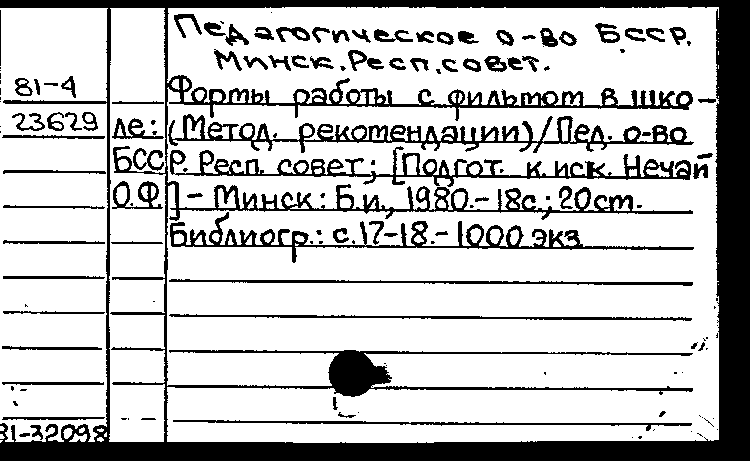 Педагогическое о-во БССР.
Минск.Респ.совет.
81-4 Формы работы с фильмом в шко-
23629 ле: (Метод. рекомендации)/Пед. о-во
БССР. Респ. совет; [Подгот. к.иск. Нечай
О.Ф.] - Минск: Б.и., 1980.-18с.; 20см.
Библиогр.: с.17-18.-1000 экз
81-32098